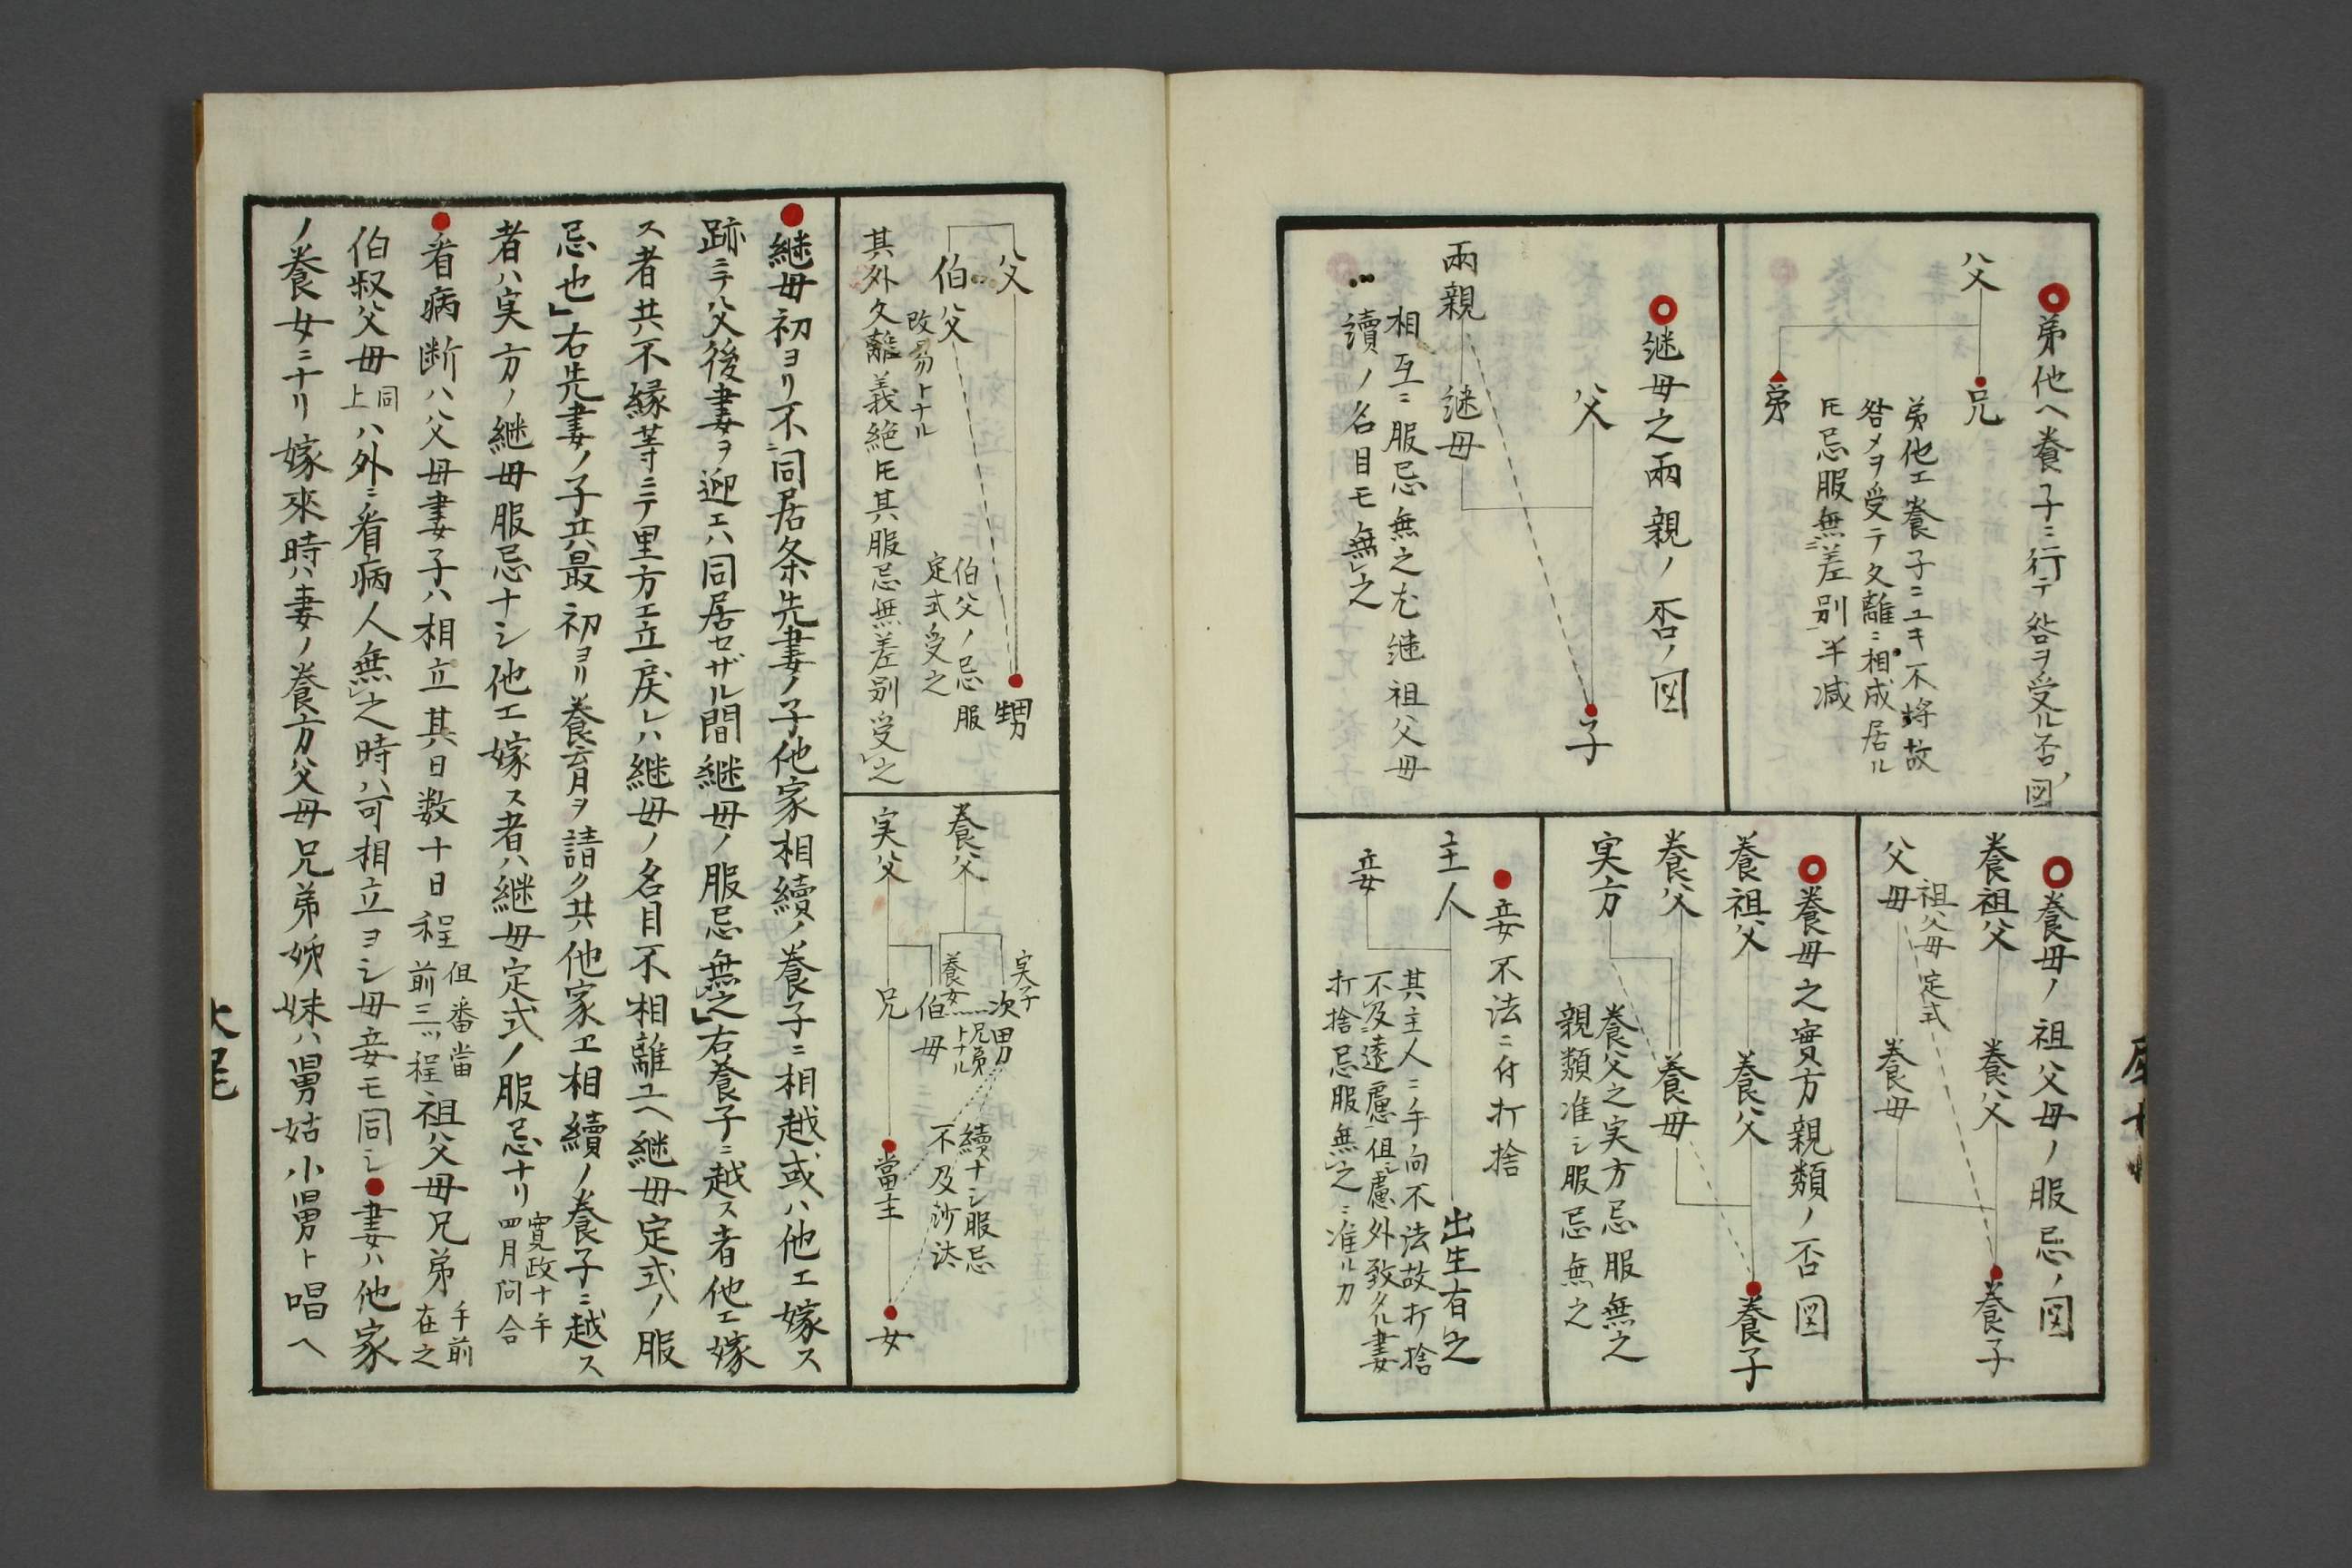 弟他ヘ養子ニ行テ咎ヲ受ル否ノ図
父
兄
弟
弟他エ養子ニユキ不埒故
咎メヲ受テ久離ニ相成居ル
𪜈忌服無差別半減
継母之両親ノ否ノ図
父
子
両親
継母
相互ニ服忌無之尤継祖父母
ノ名目モ無之
養母ノ祖父母ノ服忌ノ図
養祖父
養父
養子
祖父母定式
父母
養母
養母之實方親類ノ否図
養祖父
養父
養子
養父
養母
実方
養父之実方忌服無之
親類准シ服忌無之
妾不法ニ付打捨
主人
出生有之
妾
其主人ニ手向不法故打捨
不及遠慮但慮外致タル妻
打捨忌服無之ニ准ルカ
父
甥
伯父
改易トナル
伯父ノ忌服
定式受之
其外久離義絶𪜈其服忌無差別受之
養父
実子
次男
養女
兄弟トナル
伯母
実父
兄
當主
女
續ナシ服忌
不及沙汰
継母初ヨリ不同居条先妻ノ子他家相續ノ養子ニ相越或ハ他エ嫁ス
跡ニテ父後妻ヲ迎エハ同居セザル間継母ノ服忌無之」右養子ニ越ス者他エ嫁
ス者共不縁等ニテ里方エ立戻レハ継母ノ名目不相離ユヘ継母定式ノ服
忌也」右先妻ノ子共最初ヨリ養育ヲ請ク共他家エ相續ノ養子ニ越ス
者ハ実方ノ継母服忌ナシ他エ嫁ス者ハ継母定式ノ服忌ナリ寛政十午四月問合
看病断ハ父母妻子ハ相立其日数十日程但番當前三ツ程祖父母兄弟手前在之
伯叔父母同上ハ外ニ看病人無之時ハ可相立ヨシ母妾モ同シ妻ハ他家
ノ養女ニナリ嫁來時ハ妻ノ養方父母兄弟姉妹ハ舅姑小舅ト唱ヘ